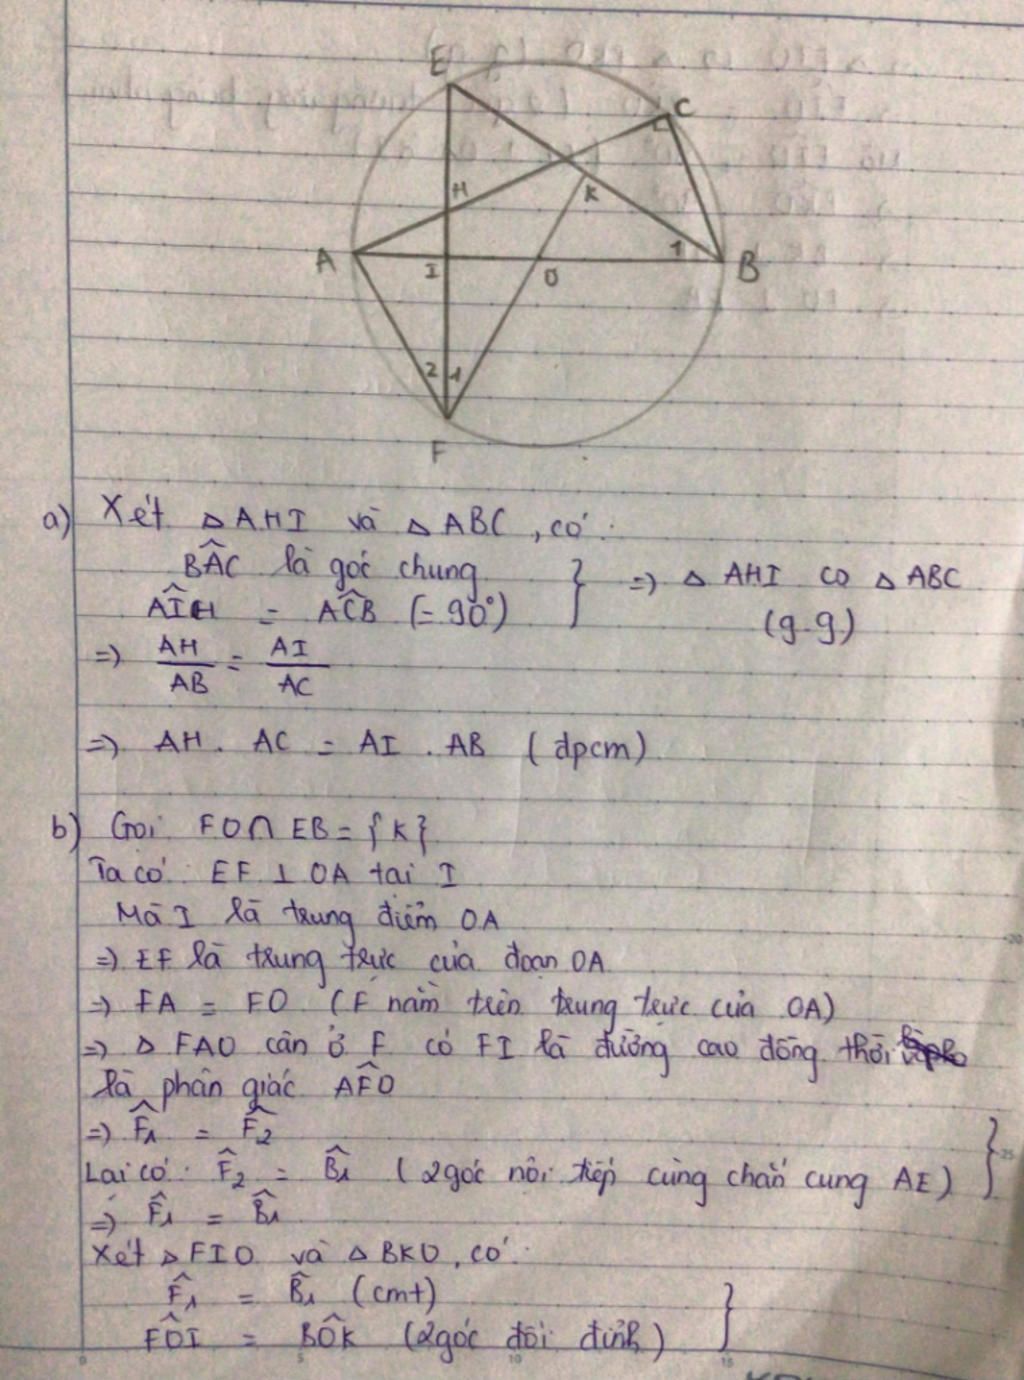 E
C
H
K
A
I
O
1
B
2 1
F
a) Xét △AHI và △ABC, có:
BÂC là góc chung
AÎH = AĈB (= 90°)
=> △AHI ∽ △ABC
(g.g)
=> AH/AB = AI/AC
=> AH . AC = AI . AB (đpcm)
b) Gọi FO∩EB = {K}
Ta có: EF ⊥ OA tại I
Mà I là trung điểm OA
=> EF là trung trực của đoạn OA
=> FA = FO (F nằm trên trung trực của OA)
=> △FAO cân ở F có FI là đường cao đồng thời
là phân giác AF̂O
=> F̂1 = F̂2
Lại có: F̂2 = B̂1 (2 góc nội tiếp cùng chắn cung AE)
=> F̂1 = B̂1
Xét △FIO và △BKO, có:
F̂1 = B̂1 (cmt)
FÔI = BÔK (2 góc đối đỉnh)